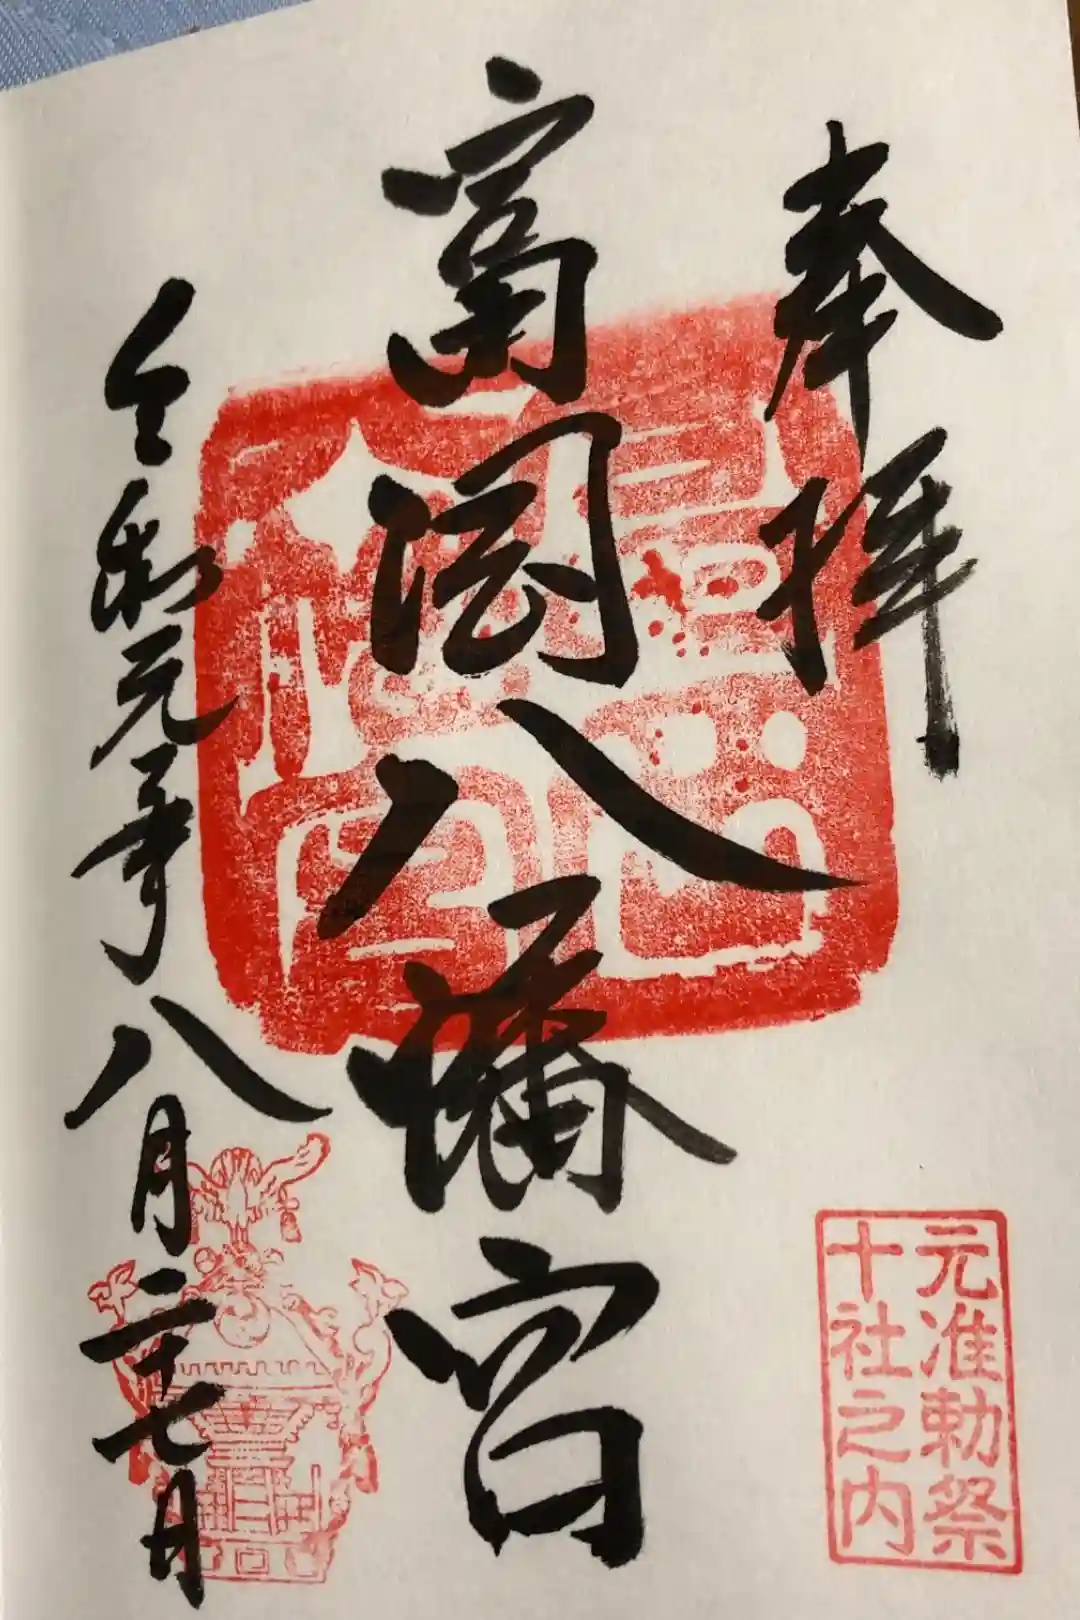 奉拝
富岡八幡宮
令和元年八月二十七日
元准勅祭
十社之内